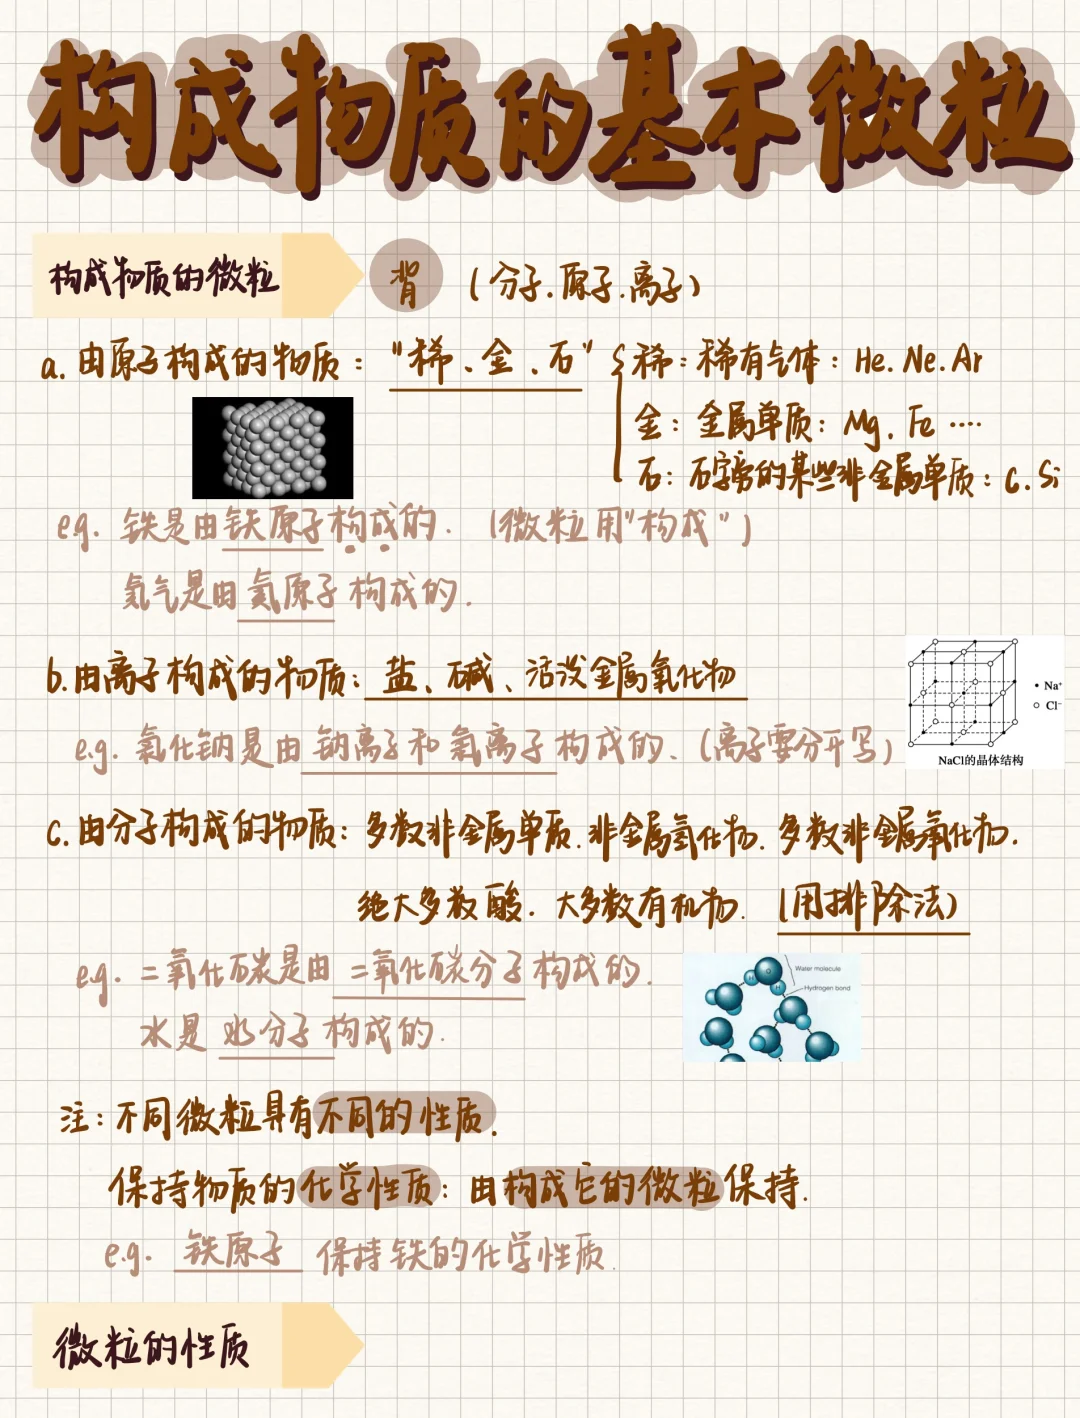 构成物质的基本微粒
构成物质的微粒 背 (分子.原子.离子)
a.由原子构成的物质："稀、金、石" { 稀：稀有气体：He. Ne. Ar
金：金属单质：Mg. Fe ····
石：石字旁的某些非金属单质：C. Si
e.g. 铁是由铁原子构成的. (微粒用"构成")
氦气是由氦原子构成的.
b.由离子构成的物质：盐、碱、活泼金属氧化物
Na⁺
Cl⁻
e.g. 氯化钠是由钠离子和氯离子构成的、(离子要分开写)
NaCl的晶体结构
c.由分子构成的物质：多数非金属单质.非金属氢化物.多数非金属氧化物.
绝大多数酸.大多数有机物. (用排除法)
e.g. 二氧化碳是由二氧化碳分子构成的.
Water molecule
Hydrogen bond
H O H
水是水分子构成的.
注：不同微粒具有不同的性质.
保持物质的化学性质：由构成它的微粒保持.
e.g. 铁原子 保持铁的化学性质.
微粒的性质